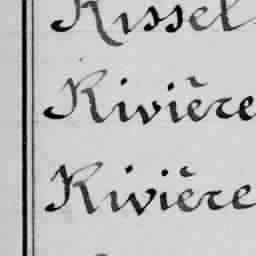 Kissel
Rivière
Rivière